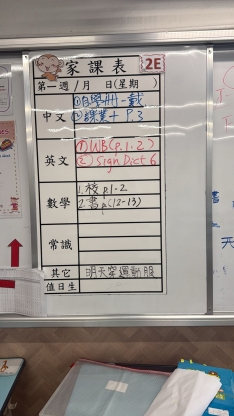 家課表 2E
第一週 / 月 日(星期 )
中文 ①自學冊-戴
②課業+ P.3
英文 ①WB(P.1-2)
② Sign Dict 6
數學 1.校 p.1-2
2.書 p.(12-13)
常識
其它 明天穿運動服
值日生